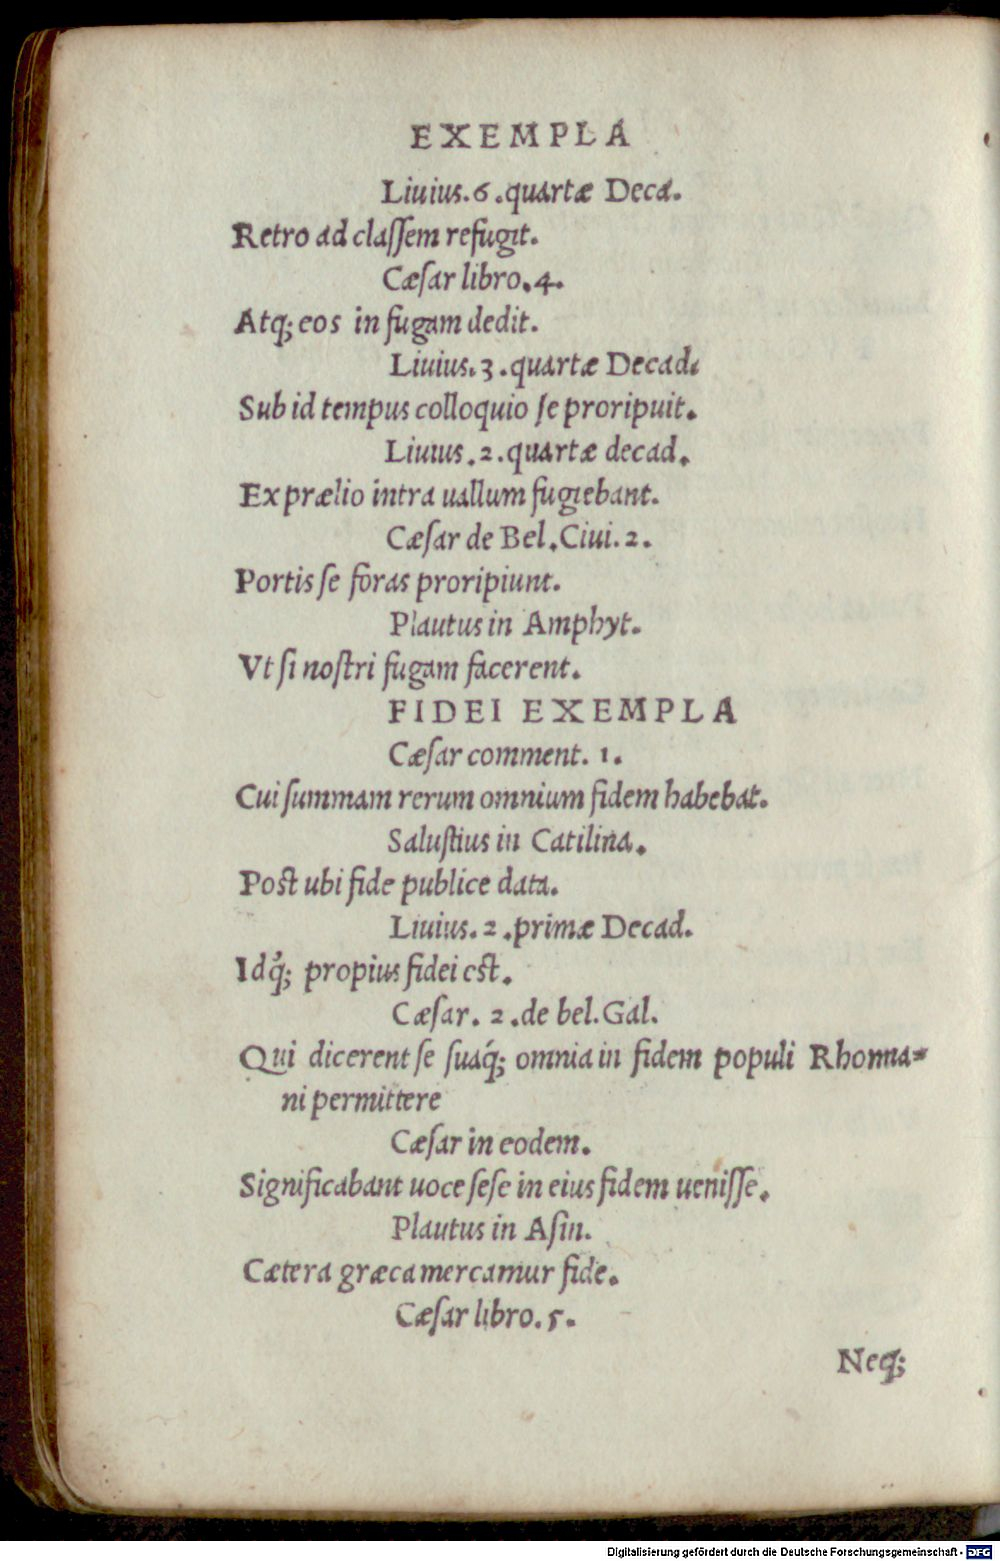 EXEMPLA
Liuius.6.quartæ Deca.
Retro ad claſſem refugit.
Cæſar libro.4.
Atq; eos in fugam dedit.
Liuius.3.quartæ Decad.
Sub id tempus colloquio ſe proripuit.
Liuius.2.quartæ decad.
Ex prælio intra uallum fugiebant.
Cæſar de Bel.Ciui.2.
Portis ſe foras proripiunt.
Plautus in Amphyt.
Vt ſi noſtri fugam facerent.
FIDEI EXEMPLA
Cæſar comment. 1.
Cui ſummam rerum omnium fidem habebat.
Saluſtius in Catilina.
Poſt ubi fide publice data.
Liuius.2.primæ Decad.
Idq́; propius fidei eſt.
Cæſar. 2.de bel.Gal.
Qui dicerent ſe ſuaq́; omnia in fidem populi Rhoma-
ni permittere
Cæſar in eodem.
Significabant uoce ſeſe in eius fidem ueniſſe.
Plautus in Aſin.
Cætera græca mercamur fide.
Cæſar libro.5.
Neq;
Digitalisierung gefördert durch die Deutsche Forschungsgemeinschaft - DFG